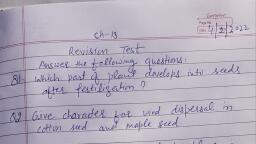 Ch-13
Revision Test
Answer the following questions.
Q1 Which part of plant develops into seeds
after fertilization?
Q2 Give character for wind dispersal in
cotton seed and maple seed